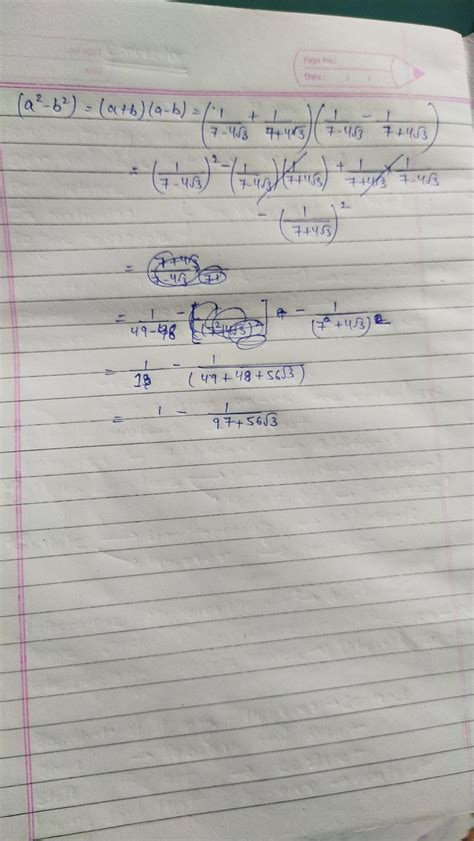 Page No.:
Date: / /
(a² - b²) = (a+b) (a-b) = (1/(7-4√3) + 1/(7+4√3)) (1/(7-4√3) - 1/(7+4√3))
= (1/(7-4√3))² - (1/(7-4√3)) (1/(7+4√3)) + 1/(7+4√3) × 1/(7-4√3)
- (1/(7+4√3))²
= (7+4√3)/(7-4√3) 7+
= 1/(49-48) - [ ] - 1/(7²+4√3)²
= 1/1 - 1/(49+48+56√3)
= 1 - 1/(97+56√3)